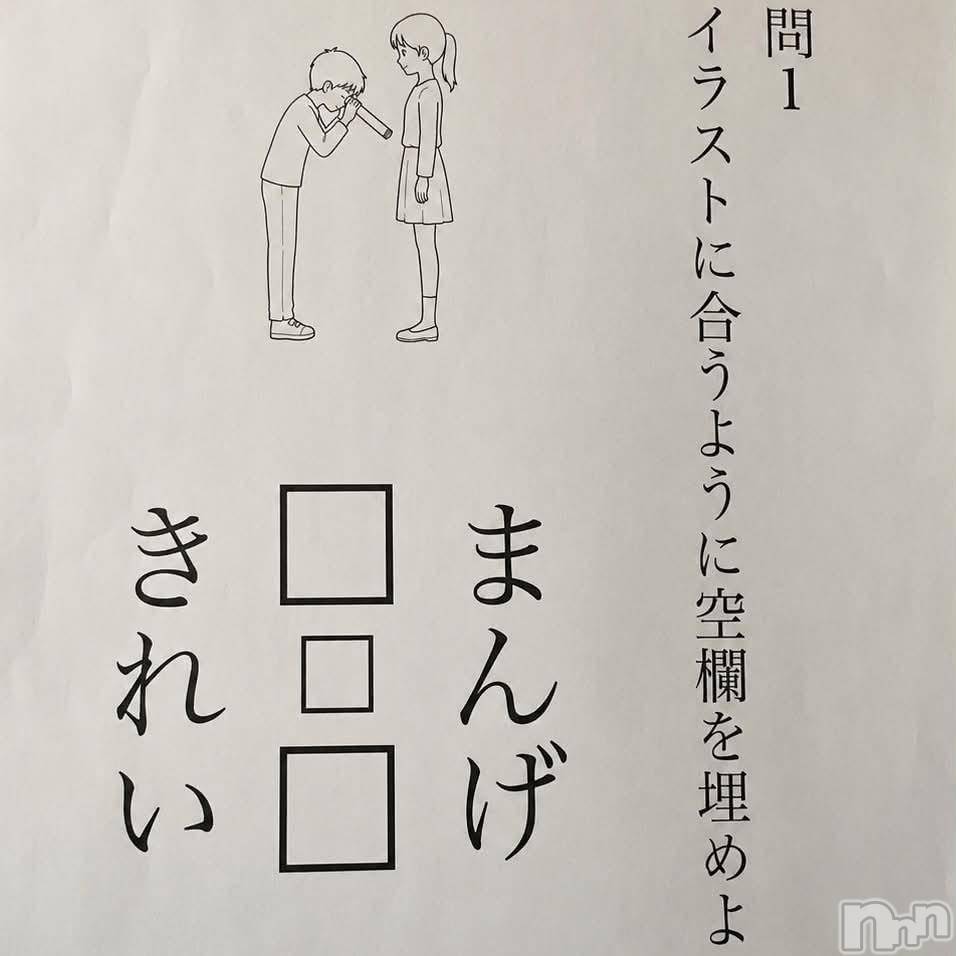 問1
イラストに合うように空欄を埋めよ
まんげ
□□□
きれい
nnn